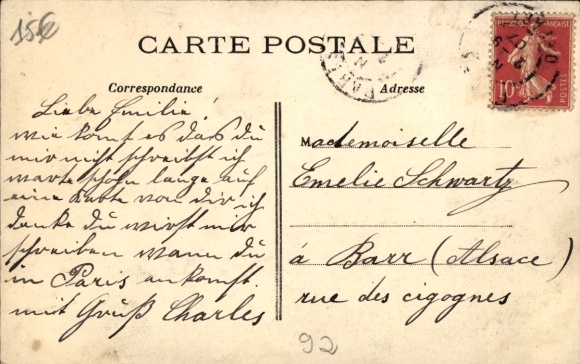 15€
CARTE POSTALE
Correspondance
Adresse
10c
Liebe Emilie!
wie komt es das du
mir nicht schreibst ich
warte schon lange auf
eine Karte von dir ich
denke du wirst mir
schreiben wann du
in Paris ankomst.
mit Gruß Charles
Mademoiselle
Emelie Schwartz
á Barr (Alsace)
rue des cigognes
92